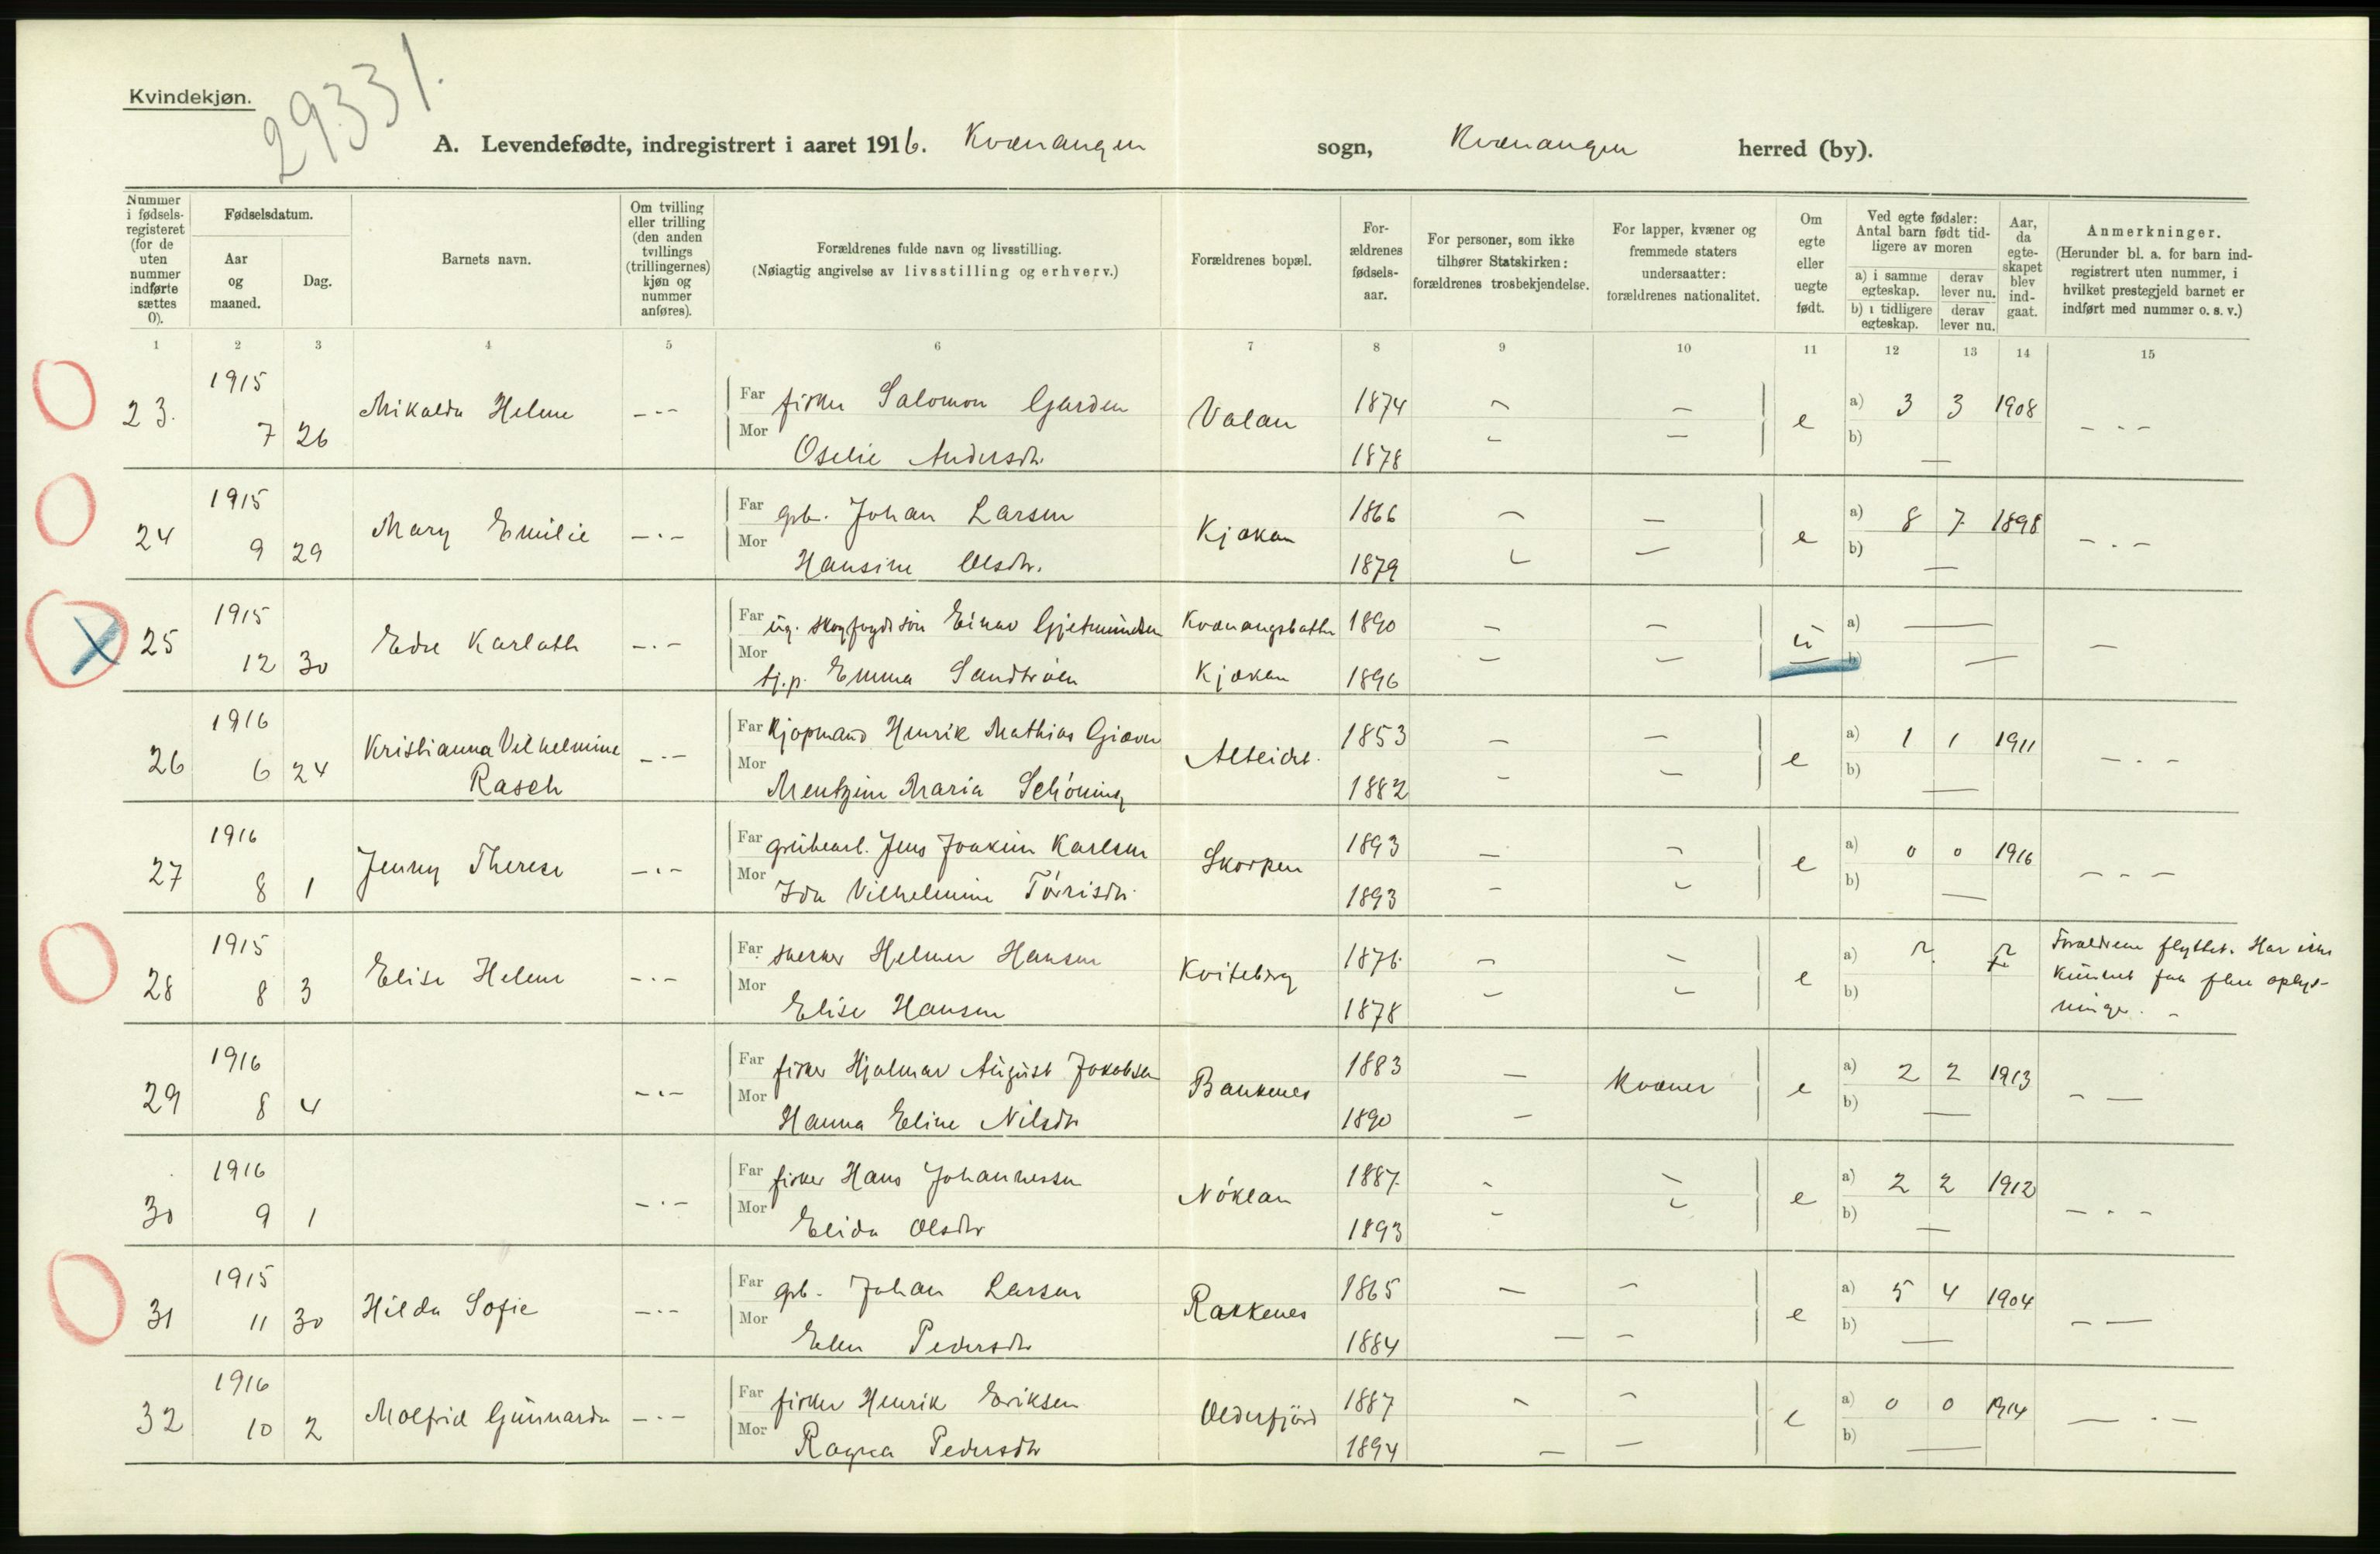 29331.
Kvindekjøn.
A. Levendefødte, indregistrert i aaret 1916. Kvænangen sogn, Kvænangen herred (by).
Nummer i fødselsregisteret (for de uten nummer indførte sættes 0).
Fødselsdatum.
Aar og maaned.
Dag.
Barnets navn.
Om tvilling eller trilling (den anden tvillings (trillingernes) kjøn og nummer anføres).
Forældrenes fulde navn og livsstilling.
(Nøiagtig angivelse av livsstilling og erhverv.)
Forældrenes bopæl.
Forældrenes fødselsaar.
For personer, som ikke tilhører Statskirken: forældrenes trosbekjendelse.
For lapper, kvæner og fremmede staters undersaatter: forældrenes nationalitet.
Om egte eller uegte født.
Ved egte fødsler: Antal barn født tidligere av moren
a) i samme egteskap. derav lever nu.
b) i tidligere egteskap. derav lever nu.
Aar, da egteskapet blev indgaat.
Anmerkninger.
(Herunder bl. a. for barn indregistrert uten nummer, i hvilket prestegjeld barnet er indført med nummer o. s. v.)
1 2 3 4 5 6 7 8 9 10 11 12 13 14 15
23. 1915 7 26 Mikalda Helene -·- Far fisker Salomon Garden Valan 1874 — — e a) 3 3 1908 -·-
Mor Oselie Andersdtr. 1878 — — b) —
24 1915 9 29 Mary Emilie -·- Far grb. Johan Larsen Kjækan 1866 — — e a) 8 7 1898 -·-
Mor Hansine Olsdtr. 1879 — — b) —
25 1915 12 30 Edre Karlotte -·- Far ug. skogfogdsøn Einar Gjetmundsen Kvænangsbotten 1890 — — u a) — —
Mor tj.p. Emma Sandtrøen Kjækan 1896 — — b) —
26 1916 6 24 Kristianna Vilhelmine Rasch -·- Far Kjøpmand Henrik Mathias Giæver Alteidet. 1853 — — e a) 1 1 1911 -·-
Mor Mentzine Maria Schöning 1882 — — b) —
27 1916 8 1 Jenny Therese -·- Far grubearb. Jens Joakim Karlsen Skorpen 1893 — — e a) 0 0 1916 - - -
Mor Ida Vilhelmine Törrisdtr. 1893 — — b) —
28 1915 8 3 Elise Helene -·- Far Helmer Hansen Kviteberg 1876 — — e a) ? ? Forældrene flyttet. Har ikke
Mor Elise Hansen 1878 — — b) kunnet faa flere oplysninger. -
29 1916 8 4 -·- Far fisker Hjalmar August Jakobsen Bankenes 1883 — Kvæner e a) 2 2 1913 - —
Mor Hanna Eline Nilsdtr 1890 — b) —
30 1916 9 1 -·- Far fisker Hans Johannessen Nöklan 1887 — — e a) 2 2 1912 -·-
Mor Elida Olsdtr 1893 — — b) —
31 1915 11 30 Hilda Sofie -·- Far grb. Johan Larsen Rakkenes 1865 — — e a) 5 4 1904 - —
Mor Elen Pedersdtr 1884 — — b) —
32 1916 10 2 Molfrid Gunnarda -·- Far fisker Henrik Eriksen Olderfjörd 1887 — — e a) 0 0 1914 — · —
Mor Ragna Pedersdtr 1894 — — b) —